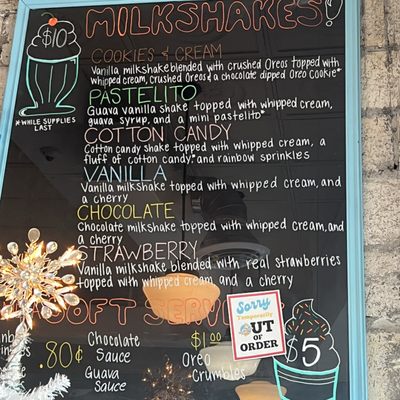 MILKSHAKES!
$10
*WHILE SUPPLIES
LAST
COOKIES & CREAM
Vanilla milkshake blended with crushed Oreos topped with
whipped cream, crushed Oreos & a chocolate dipped Oreo Cookie*
PASTELITO
Guava vanilla shake topped with whipped cream,
guava syrup, and a mini pastelito*
COTTON CANDY
Cotton candy shake topped with whipped cream, a
fluff of cotton candy,* and rainbow sprinkles
VANILLA
Vanilla milkshake topped with whipped cream, and
a cherry
CHOCOLATE
Chocolate milkshake topped with whipped cream, and
a cherry
STRAWBERRY
Vanilla milkshake blended with real strawberries
topped with whipped cream and a cherry
SOFT SERVE
.80¢
Chocolate
Sauce
Guava
Sauce
$1.00
Oreo
Crumbles
Sorry
Temporarily
OUT
OF
ORDER
$5